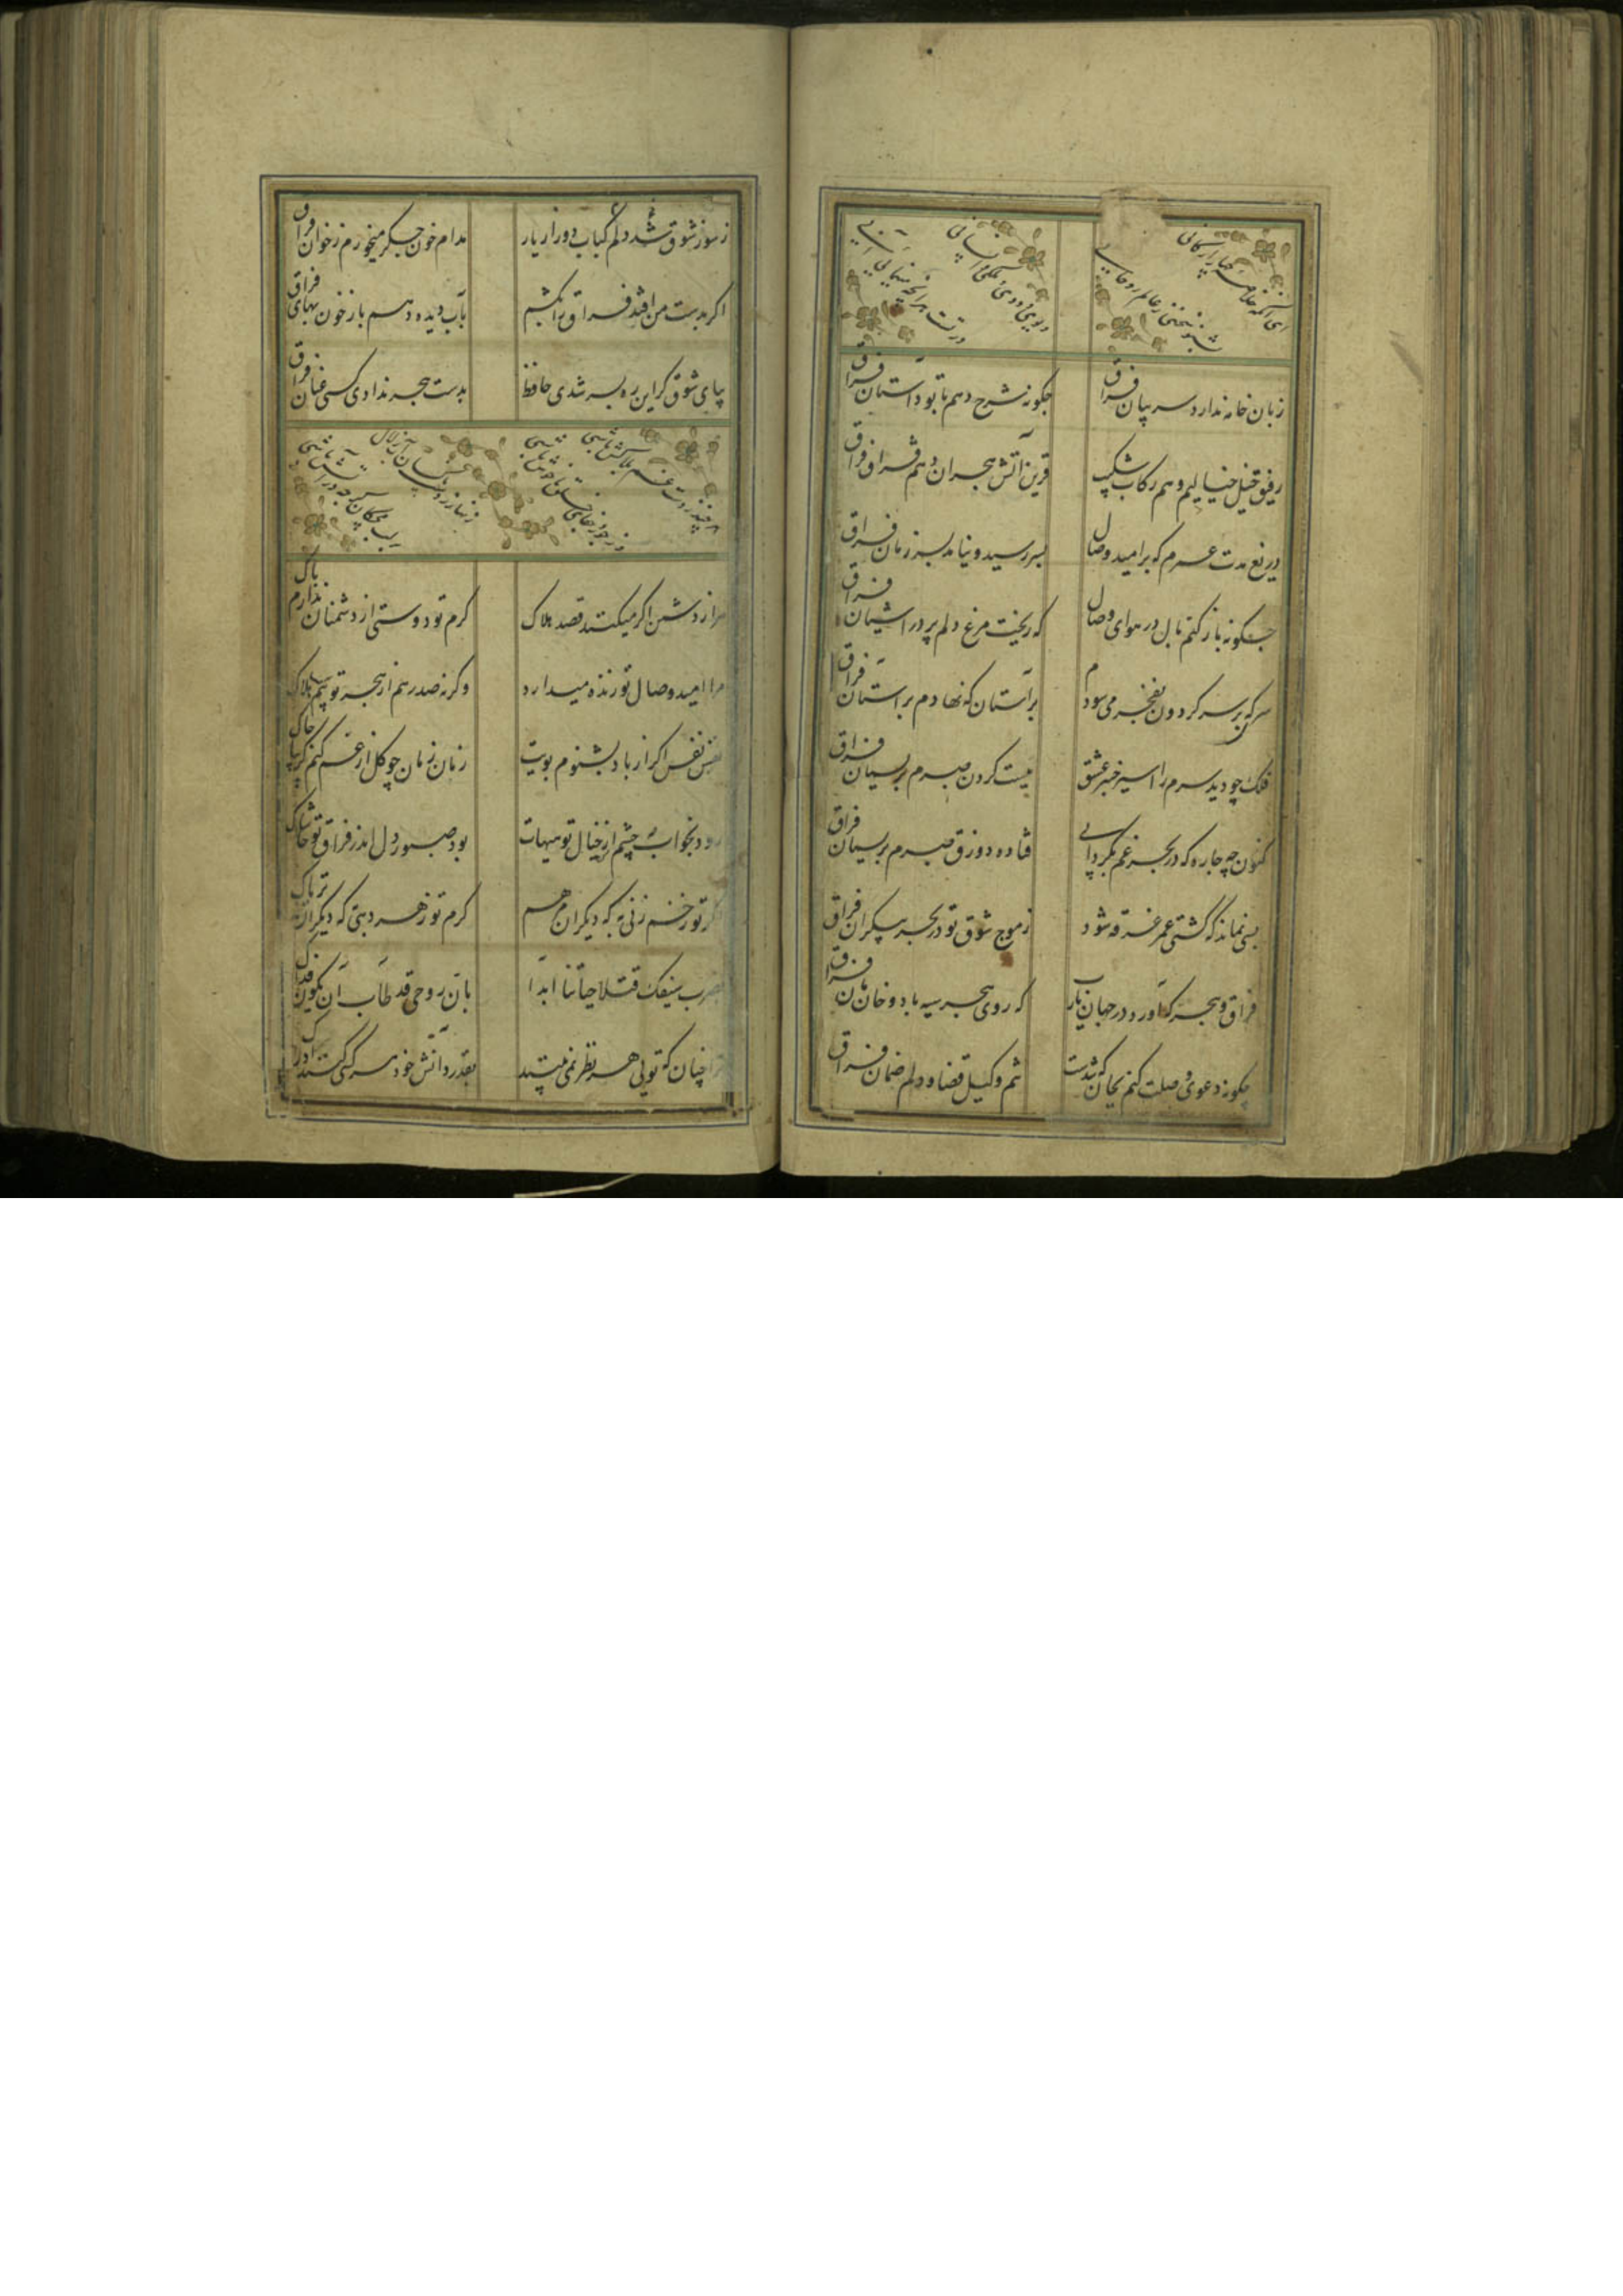 ای آنکه خلاصه چهار ارکانی
بشنو سخنی ز عالم روحانی
دیوی و ددی و ملکی انسانی
در تست هر آنچه مینمایی آنی
زبان خامه ندارد سر بیان فراق
جکونه شرح دهم با تو داستان فراق
رفیق خیل خیالیم و هم رکاب شکیب
قرین آتش هجران و هم قران فراق
دریغ مدت عمرم که بر امید وصال
بسر رسید و نیامد بسر زمان فراق
جکونه باز کنم بال در هوای وصال
که ریخت مرغ دلم پر در آشیان فراق
سری که بر سر کردون بفخر می سودم
بر آستان که نهادم بر آستان فراق
فلک چو دید سرم را اسیر خبر عشق
ببست کردن صبرم بریسمان فراق
کنون چه جاره که در بحر غم بکردابی
فتاده زورق صبرم بریسمان فراق
بسی نماند که کشتی عمر غرقه شود
ز موج شوق تو در بحر بیکران فراق
فراق و هجر که آورد در جهان یارب
که روی هجر سیه باد و خانمان فراق
چکونه دعوی وصلت کنم بجان که شدست
تنم وکیل قضا و دلم ضمان فراق
ز سوز شوق شد دلم کباب دور از یار
مدام خون جگر میخورم ز خوان فراق
اکر بدست من افتد فراق را بکشم
بآب دیده دهم باز خون بهای فراق
بپای شوق کر این ره بسر شدی حافظ
بدست هجر ندادی کسی عنان فراق
زنهار ز دست
هزار دشمن اکر میکنند قصد هلاک
کرم تو دوستی از دشمنان ندارم باک
مرا امید وصال تو زنده میدارد
وکرنه صد رهم از هجر تو بیم هلاک
نفس نفس اکر از باد بشنوم بویت
زمان زمان چو کل از غم کنم کریبان چاک
رود بخواب دو چشم از خیال تو هیهات
بود صبور دل اندر فراق تو حاشاک
اکر تو زخم زنی به که دیکران مرهم
کرم تو زهر دهی به که دیکران تریاک
بضرب سیفک قتلی حیاتنا ابدا
بان روحی قد طاب ان یکون فداک
ترا چنان که تویی هر نظر نمی بیند
بقدر دانش خود هر کسی کند ادراک